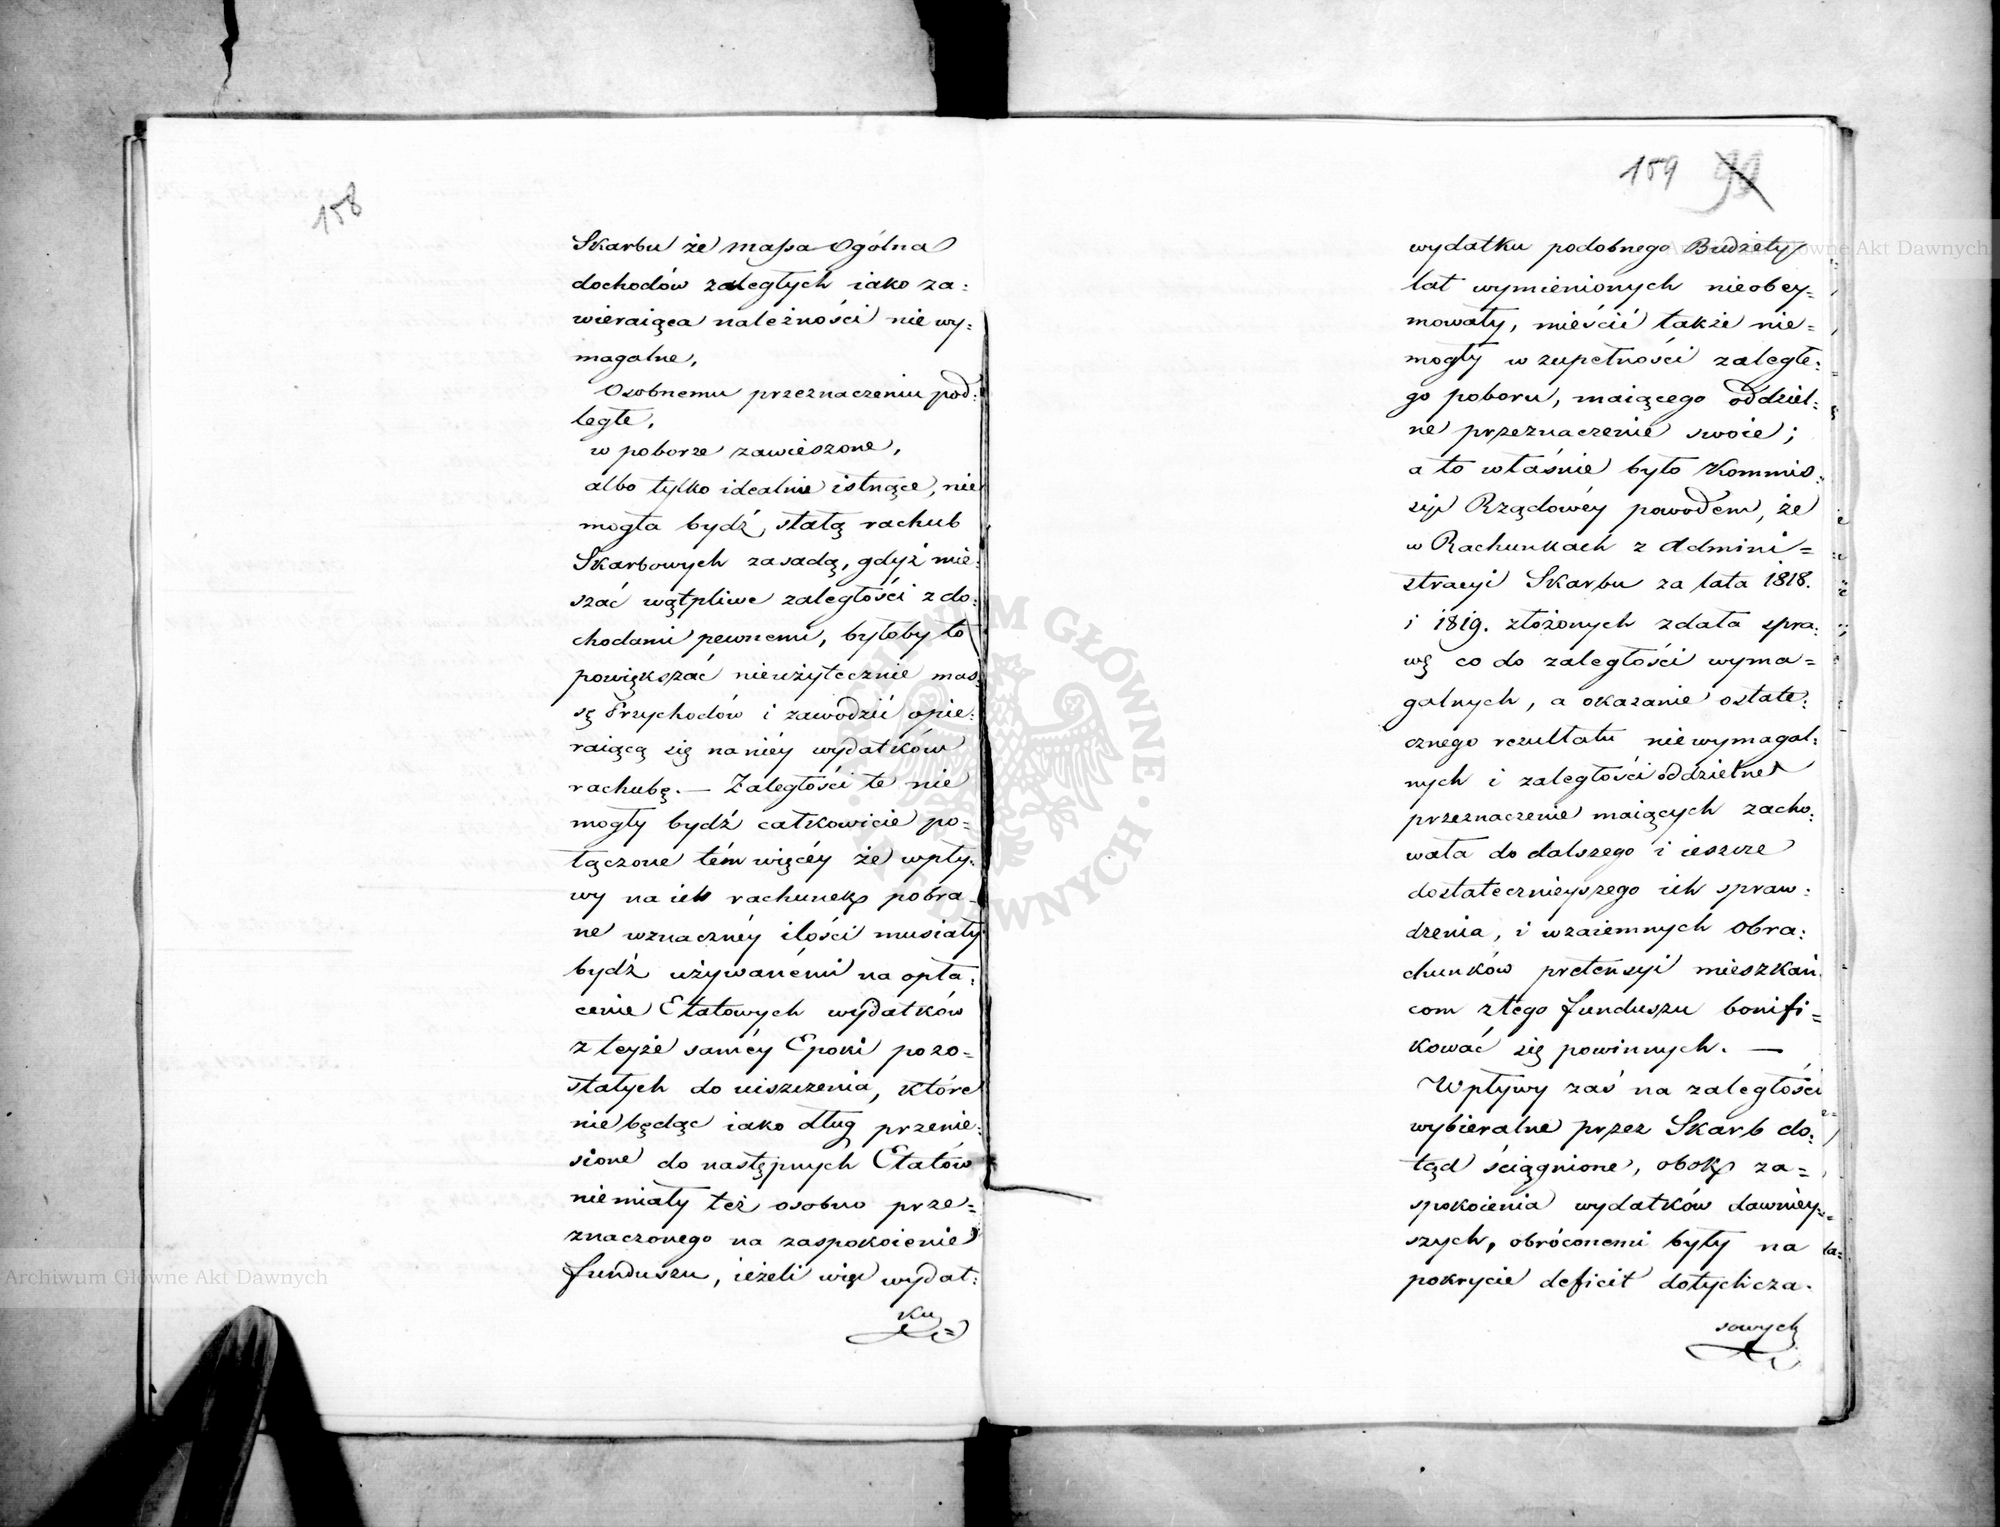 158
Skarbu że massa Ogólna
dochodów zaległych iako za:
wieraiąca należności nie wy:
magalne,
Osobnemu przeznaczeniu pod:
ległe,
w poborze zawieszone,
albo tylko idealnie istnące, nie
mogła bydź stałą rachub
Skarbowych zasadą, gdyż mie:
szać wątpliwe zaległości z do:
chodami pewnemi, byłoby to
powiększać nieużytecznie mas:
sę Przychodów i zawodzić opie:
raiącą się na niéy wydatków
rachubę. — Zaległości te nie
mogły bydź całkowicie po=
łączone tém więcéy że wpły:
wy na ich rachunek pobra=
ne wznacznéy ilości musiały
bydź używanémi na opła:
cenie Etatowych wydatków
z teyże saméy Epoki pozo=
stałych do uiszczenia, które
nie będąc iako dług przenie:
sione do następnych Etatów
niemiały też osobno prze=
znaczonego na zaspokoienie
funduszu, ieżeli więc wydat:
ku
159 99
wydatku podobnego Budżety
lat wymienionych nieobey=
mowały, mieścić także nie=
mogły w zupełności zaległe:
go poboru, maiącego oddziel:
ne przeznaczenie swoie;
a to właśnie było Kommis:
syi Rządowéy powodem, że
w Rachunkach z Admini=
stracyi Skarbu za lata 1818.
i 1819. złożonych zdała spra:
wę co do zaległości wyma=
galnych, a okazanie ostate:
cznego rezultatu niewymagal:
nych i zaległości oddzielne
przeznaczenie maiących zacho:
wała do dalszego i ieszcze
dostatecznieyszego ich spraw:
dzenia, i wzaiemnych Obra:
chunków pretensyi mieszkań
com z tego funduszu bonifi=
kować się powinnych. —
Wpływy zaś na zaległości
wybieralne przez Skarb do:
tąd ściągnione, obok za=
spokoienia wydatków dawniey=
szych, obróconemi były na
pokrycie deficit dotychcza.
sowych
ARCHIWUM GŁÓWNE AKT DAWNYCH
Archiwum Główne Akt Dawnych
Archiwum Główne Akt Dawnych